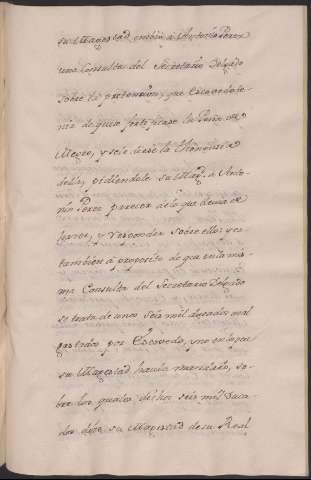 su Magestad embió á Antonio Perez
una Consulta del Secretario Delgado
sobre la pretension, que Escovedo te-
nia de que se fortificase la Peña de
Mogro, y se le diese la Thenencia
della, pidiendole su Magd. á Anto-
nio Perez parecer de lo que devia de
hacer, y responder sobre ello; y es
tambien á proposito de que en la mis-
ma Consulta del Secretario Delgado
se trata de unos seis mil ducados mal
gastados por Escovedo, y no en lo que
su Magestad havia mandado, so-
bre los quales dichos seis mil duca-
dos dice su Magestad de su Real